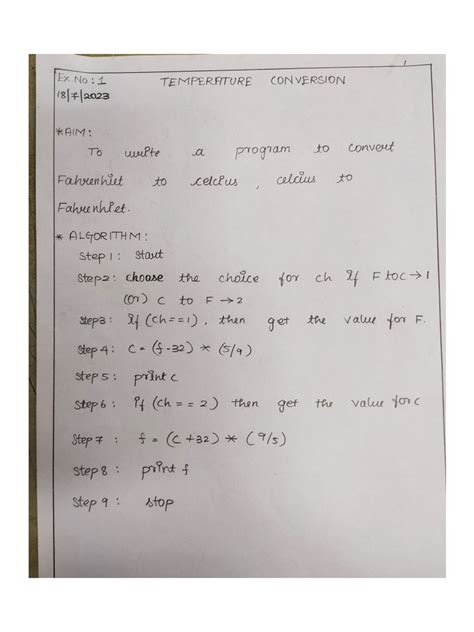 Ex. No : 1 TEMPERATURE CONVERSION
18/7/2023
*AIM:
To write a program to convert
Fahrenhiet to celcius , celcius to
Fahrenhiet.
* ALGORITHM:
Step 1 : Start
Step2 : choose the choice for ch if F to C → 1
(or) C to F → 2
Step3 : If (ch==1), then get the value for F.
Step 4 : C = (f-32) * (5/9)
Step 5 : print c
Step 6 : if (ch == 2) then get the value for c
Step 7 : f = (C +32) * (9/5)
Step 8 : print f
Step 9 : stop